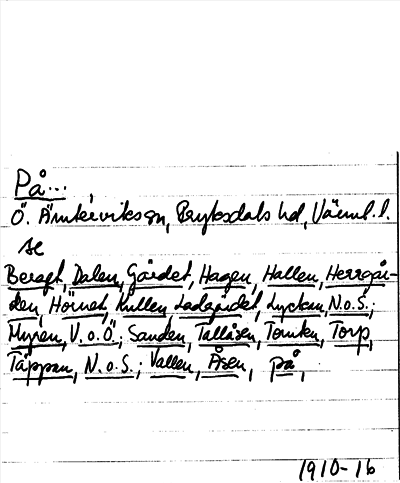 På...
Ö. Ämterviks sn, Fryksdals hd, Värml. l.
se
Berget, Dalen, Gärdet, Hagen, Hallen, Herrgår-
den, Hörnet, Kullen, Ladugärdet, Lyckan, N.o.S.;
Myren, V.o.Ö.; Sanden, Tallåsen, Tomten, Torp,
Täppan, N.o.S.; Vallen, Åsen, på,
1910-16